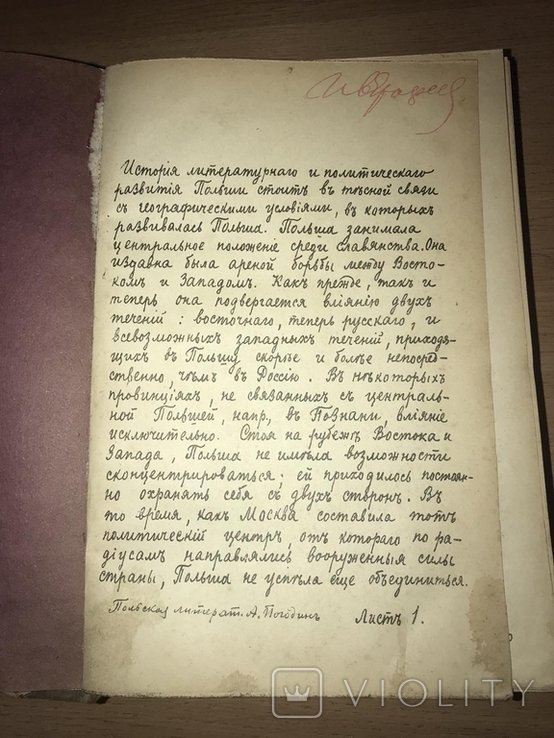 Исторія литературнаго и политическаго
развитія Польши стоитъ въ тѣсной связи
съ географическими условіями, въ которыхъ
развивалась Польша. Польша занимала
центральное положеніе среди славянства. Она
издавна была ареной борьбы между Восто-
комъ и Западомъ. Какъ прежде, такъ и
теперь она подвергается вліянію двухъ
теченій: восточнаго, теперь русскаго, и
всевозможныхъ западныхъ теченій, приходя-
щихъ въ Польшу скорѣе и болѣе непосред-
ственно, чѣмъ въ Россію. Въ нѣкоторыхъ
провинціяхъ, не связанныхъ съ централь-
ной Польшей, напр, въ Познани, вліяніе
исключительно. Стоя на рубежѣ Востока и
Запада, Польша не имѣла возможности
сконцентрироваться; ей приходилось постоян-
но охранять себя съ двухъ сторонъ. Въ
то время, какъ Москва составила тотъ
политическій центръ, отъ котораго по ра-
діусамъ направлялись вооруженныя силы
страны, Польша не успѣла еще объединиться.
Польская литерат. А. Погодинъ Листъ 1.
VIOLITY